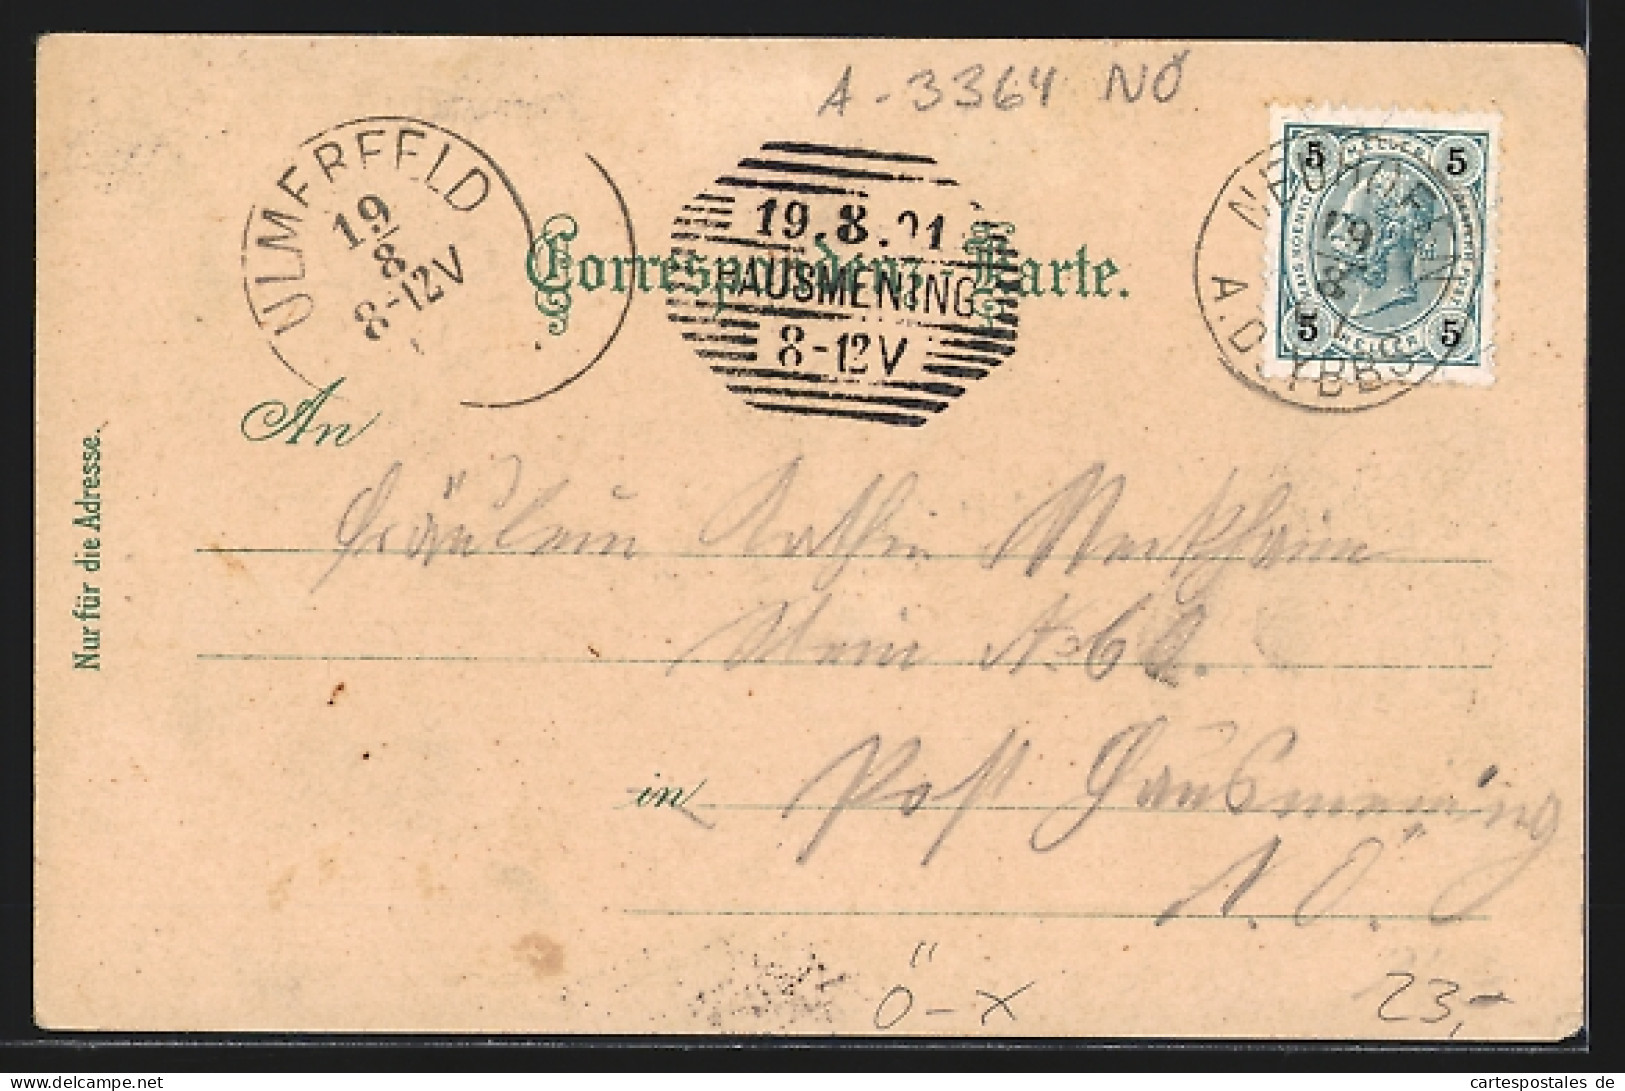 A - 3364 NÖ
ULMERFELD
19/8
8-12V
Correspondenz-Karte.
19.8.01
HAUSMENING
8-12V
5 HELLER 5
5 HELLER 5
NEUHOFEN
19
8
A.D. YBBS
An
Nur für die Adresse.
Fräulein Kathi
in Post Hausmening
N. Ö.
Ö - X
23,-
cartespostales de